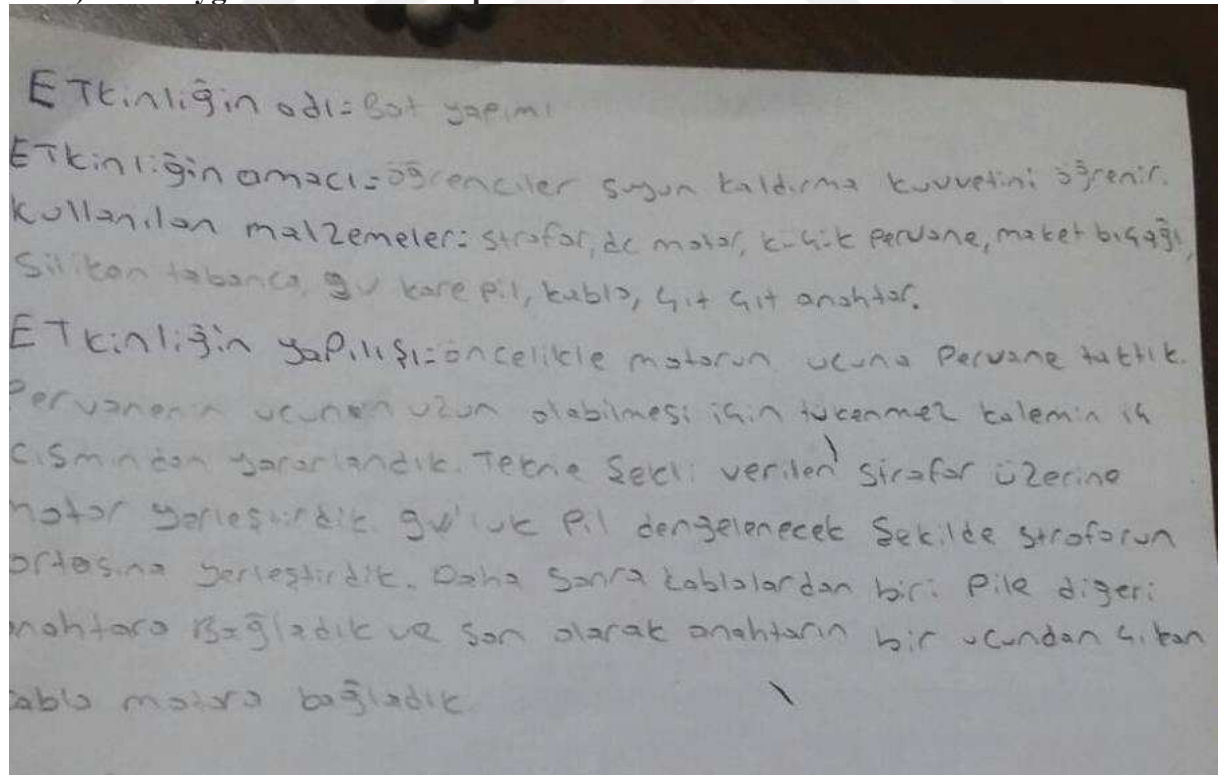 ETkinliğin adı=Bot yapımı
ETkinliğin amacı=öğrenciler suyun kaldırma kuvvetini öğrenir.
Kullanılan malzemeler: strafor, dc motor, küçük pervane, maket bıçağı,
Silikon tabanca, 9v kare pil, kablo, çıt çıt anahtar.
ETkinliğin yapılışı=öncelikle motorun ucuna pervane taktık.
Pervanenin ucunun uzun olabilmesi için tükenmez kalemin iç
cisminden yararlandık. Tekne Şekli verilen strafor üzerine
motor yerleştirdik. 9v'luk Pil dengelenecek Şekilde straforun
ortasına yerleştirdik. Daha Sonra kablolardan biri Pile diğeri
anahtara Bağladık ve Son olarak anahtarın bir ucundan çıkan
kablo motora bağladık.